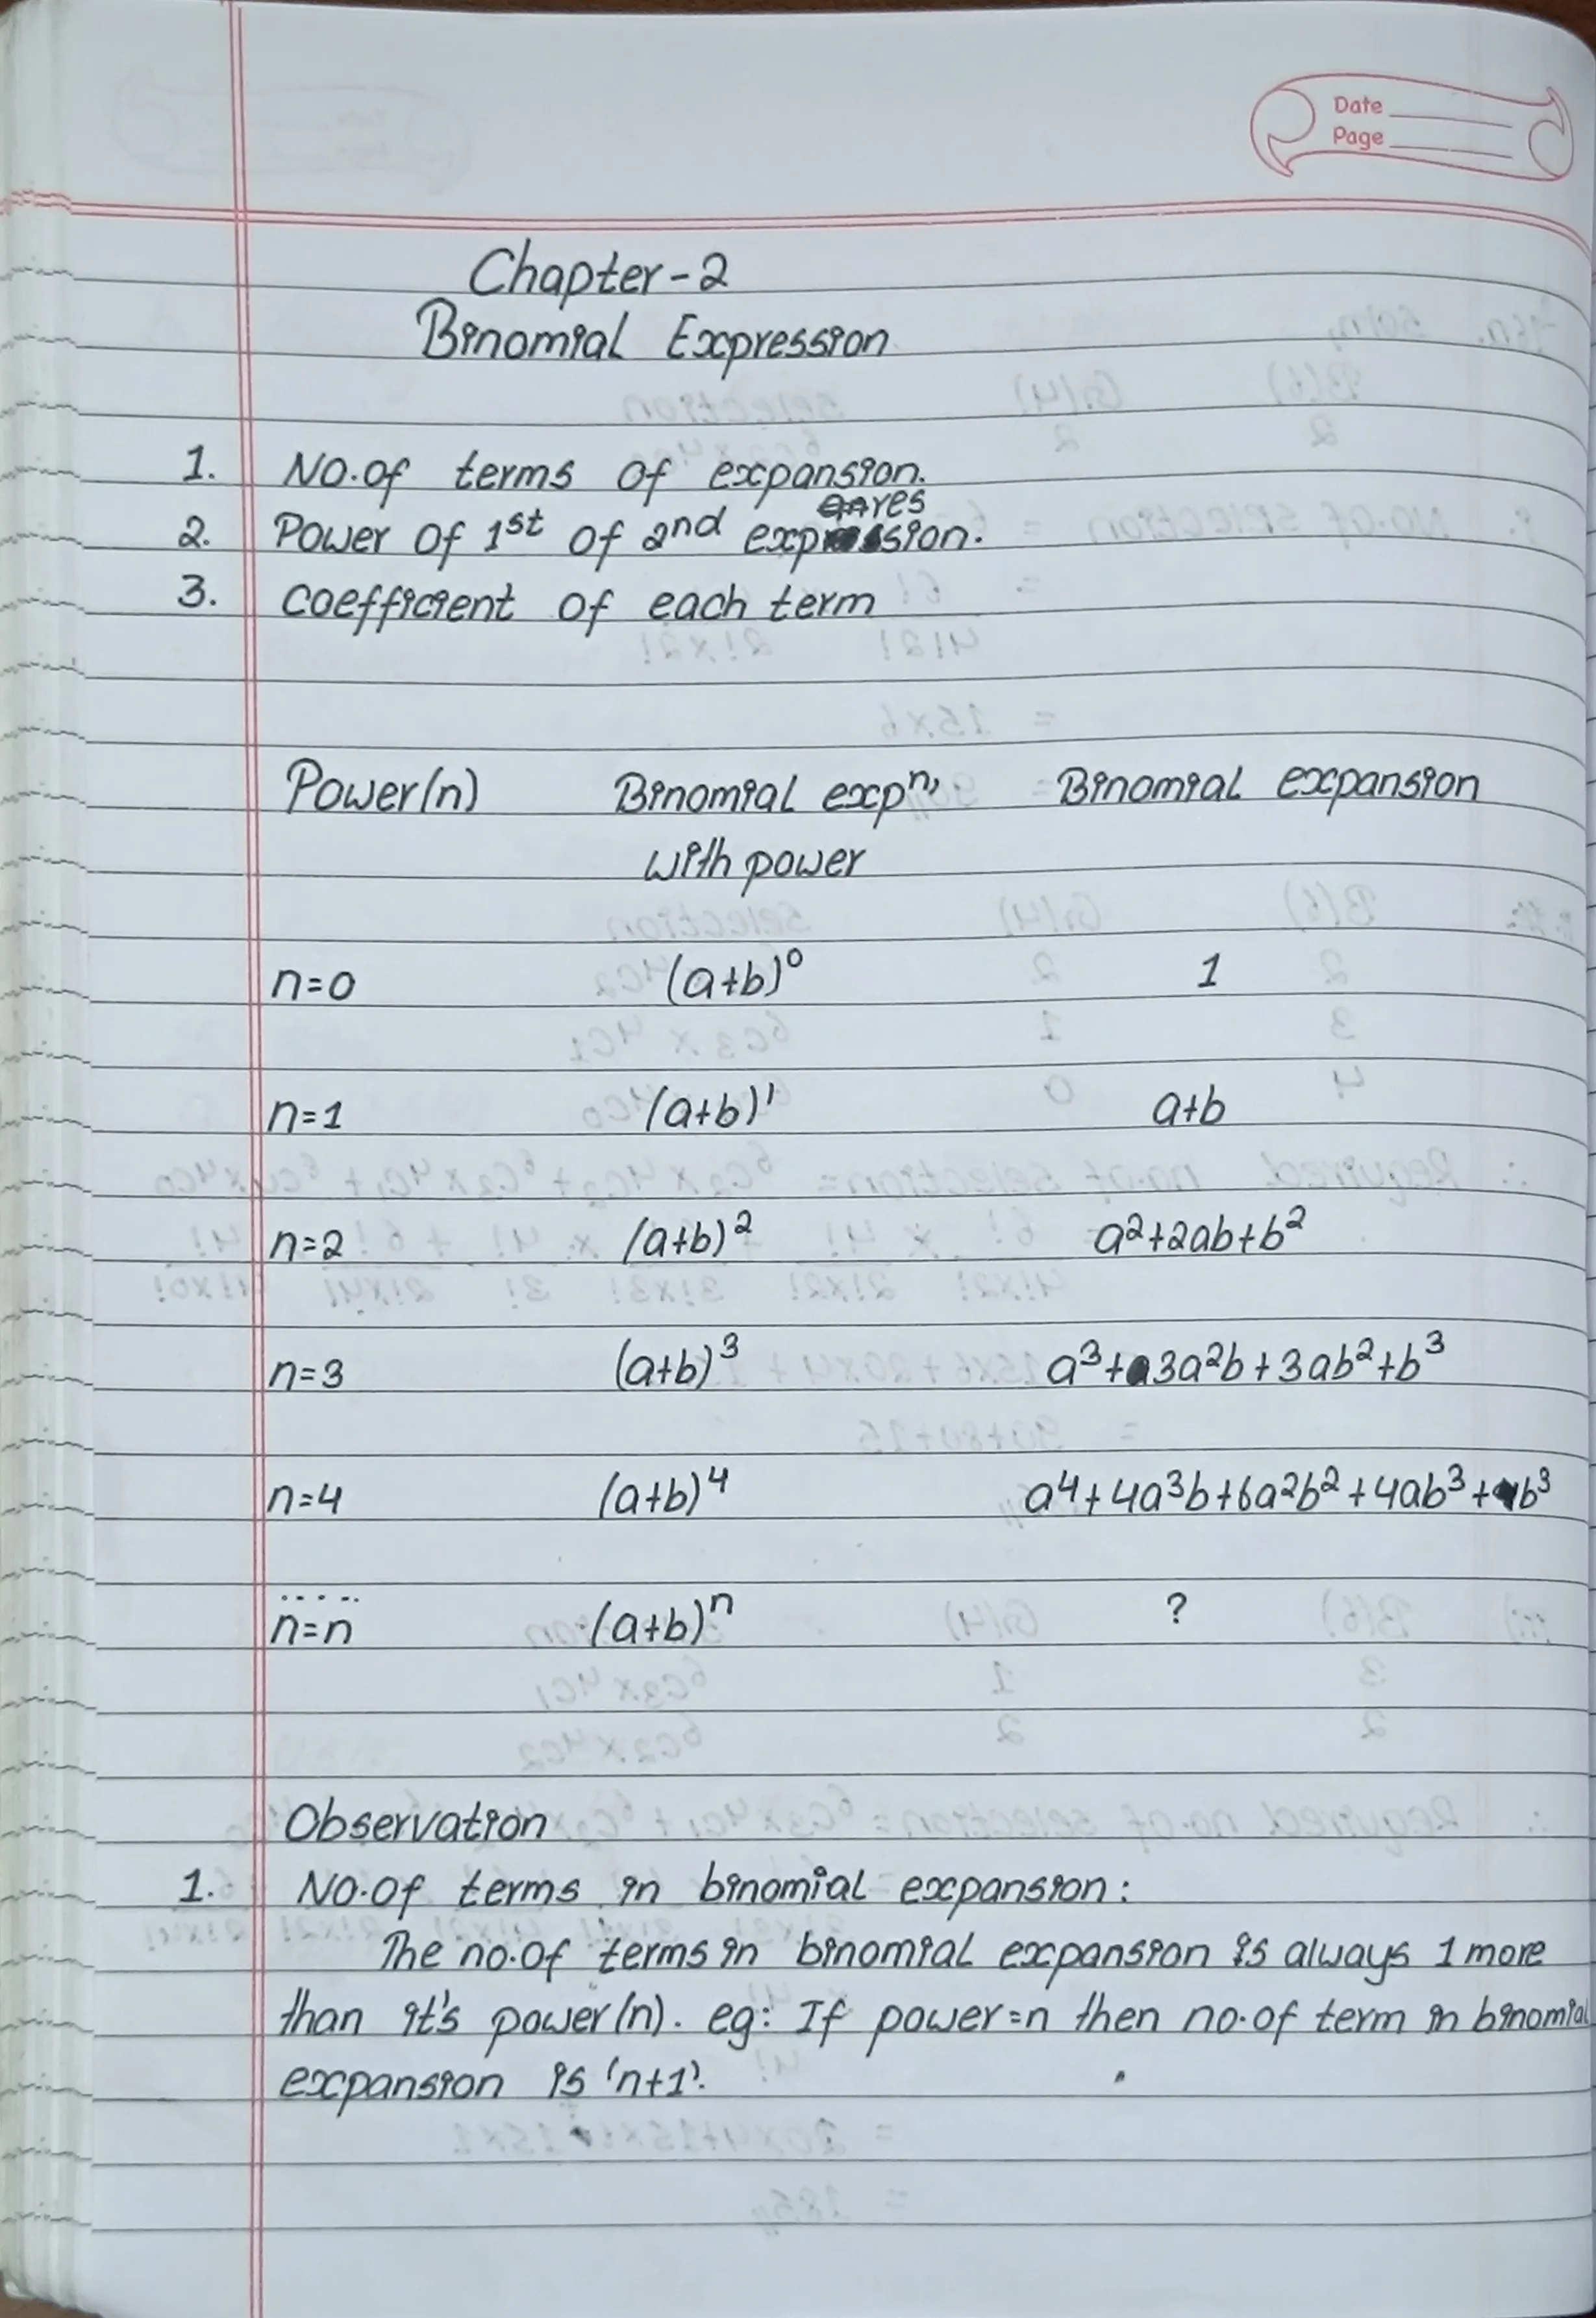 Date
Page
Chapter-2
Binomial Expression
1. No.of terms of expansion.
res
2. Power of 1st of 2nd expression.
3. Coefficient of each term
Power(n) Binomial expn, Binomial expansion
with power
n=0 (a+b)⁰ 1
n=1 (a+b)¹ a+b
n=2 (a+b)² a²+2ab+b²
n=3 (a+b)³ a³+3a²b+3ab²+b³
n=4 (a+b)⁴ a⁴+4a³b+6a²b²+4ab³+b³
.....
n=n (a+b)ⁿ ?
Observation
1. No.of terms in binomial expansion:
The no.of terms in binomial expansion is always 1 more
than it's power(n). eg: If power=n then no.of term in binomial
expansion is 'n+1'.